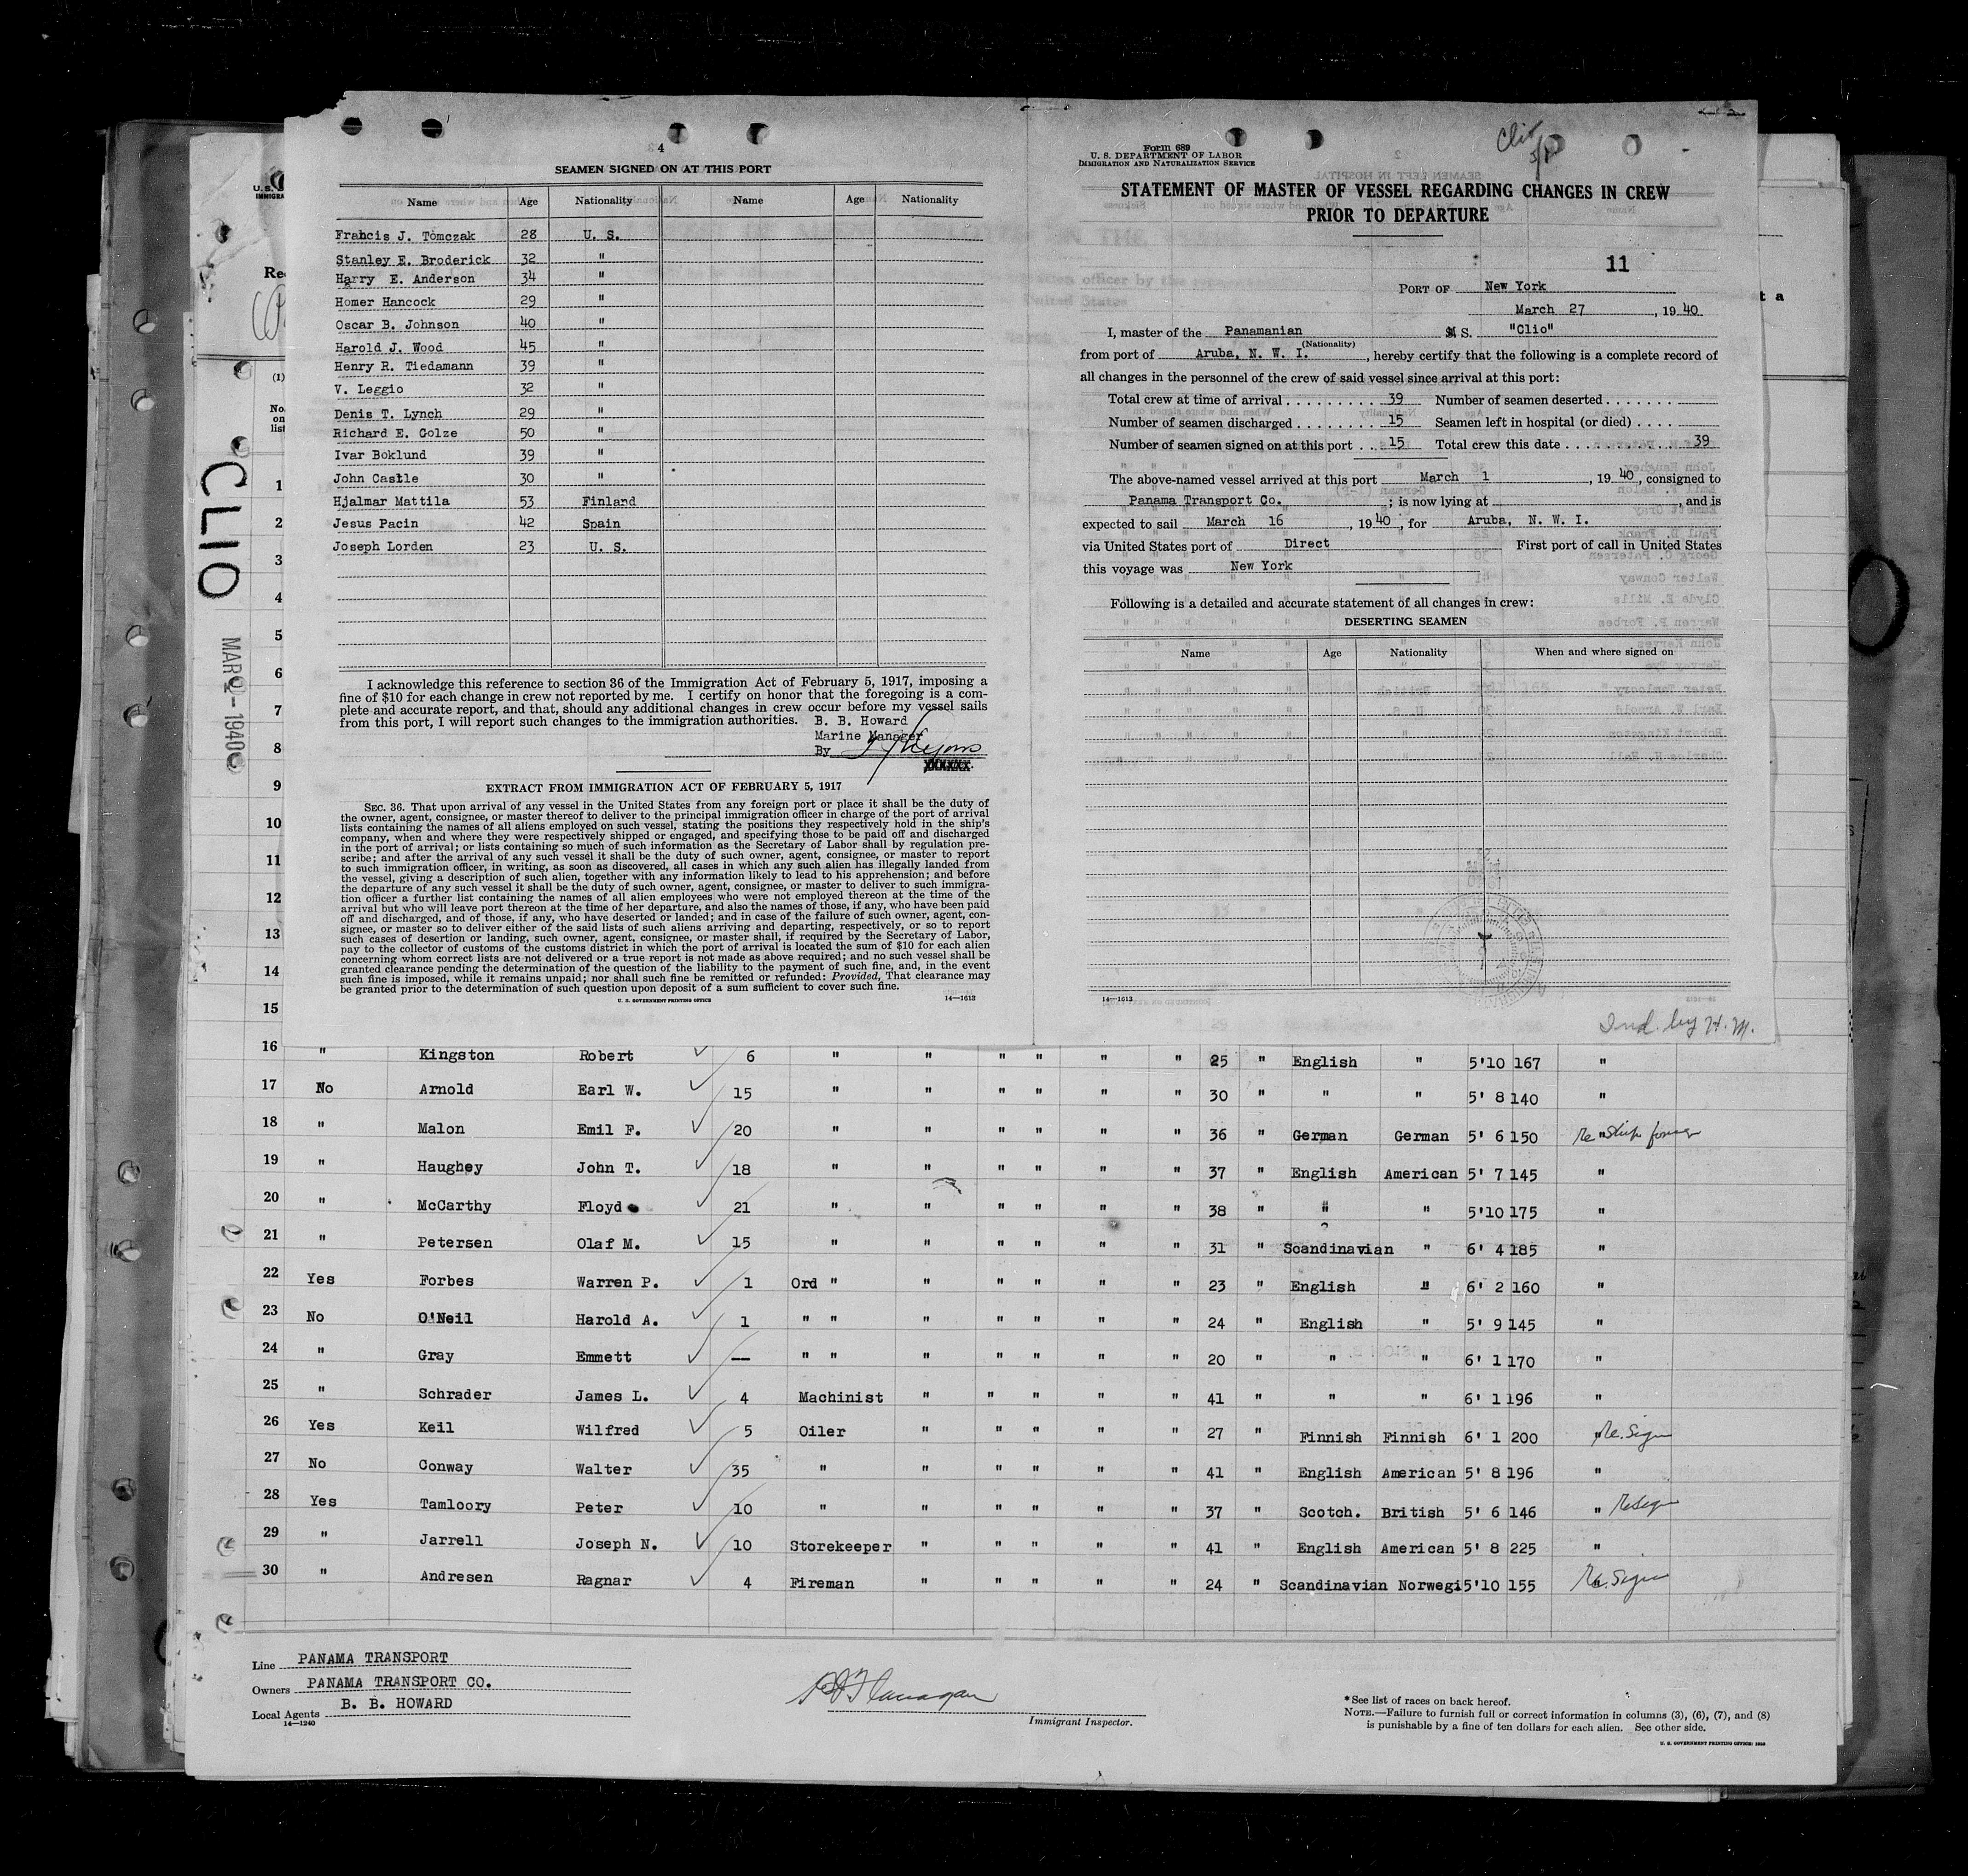 4
SEAMEN SIGNED ON AT THIS PORT
Name Age Nationality Name Age Nationality
Francis J. Tomczak 28 U. S.
Stanley E. Broderick 32 "
Harry E. Anderson 34 "
Homer Hancock 29 "
Oscar B. Johnson 40 "
Harold J. Wood 45 "
Henry R. Tiedamann 39 "
V. Leggio 32 "
Denis T. Lynch 29 "
Richard E. Golze 50 "
Ivar Boklund 39 "
John Castle 30 "
Hjalmar Mattila 53 Finland
Jesus Pacin 42 Spain
Joseph Lorden 23 U. S.
I acknowledge this reference to section 36 of the Immigration Act of February 5, 1917, imposing a
fine of $10 for each change in crew not reported by me. I certify on honor that the foregoing is a com-
plete and accurate report, and that, should any additional changes in crew occur before my vessel sails
from this port, I will report such changes to the immigration authorities. B. B. Howard
Marine Manager
By
EXTRACT FROM IMMIGRATION ACT OF FEBRUARY 5, 1917
SEC. 36. That upon arrival of any vessel in the United States from any foreign port or place it shall be the duty of
the owner, agent, consignee, or master thereof to deliver to the principal immigration officer in charge of the port of arrival
lists containing the names of all aliens employed on such vessel, stating the positions they respectively hold in the ship's
company, when and where they were respectively shipped or engaged, and specifying those to be paid off and discharged
in the port of arrival; or lists containing so much of such information as the Secretary of Labor shall by regulation pre-
scribe; and after the arrival of any such vessel it shall be the duty of such owner, agent, consignee, or master to report
to such immigration officer, in writing, as soon as discovered, all cases in which any such alien has illegally landed from
the vessel, giving a description of such alien, together with any information likely to lead to his apprehension; and before
the departure of any such vessel it shall be the duty of such owner, agent, consignee, or master to deliver to such immigra-
tion officer a further list containing the names of all alien employees who were not employed thereon at the time of the
arrival but who will leave port thereon at the time of her departure, and also the names of those, if any, who have been paid
off and discharged, and of those, if any, who have deserted or landed; and in case of the failure of such owner, agent, con-
signee, or master so to deliver either of the said lists of such aliens arriving and departing, respectively, or so to report
such cases of desertion or landing, such owner, agent, consignee, or master shall, if required by the Secretary of Labor,
pay to the collector of customs of the customs district in which the port of arrival is located the sum of $10 for each alien
concerning whom correct lists are not delivered or a true report is not made as above required; and no such vessel shall be
granted clearance pending the determination of the question of the liability to the payment of such fine, and, in the event
such fine is imposed, while it remains unpaid; nor shall such fine be remitted or refunded: Provided, That clearance may
be granted prior to the determination of such question upon deposit of a sum sufficient to cover such fine.
U. S. GOVERNMENT PRINTING OFFICE 14—1613
Clio
Form 689
U. S. DEPARTMENT OF LABOR
IMMIGRATION AND NATURALIZATION SERVICE
STATEMENT OF MASTER OF VESSEL REGARDING CHANGES IN CREW
PRIOR TO DEPARTURE
11
PORT OF New York
March 27, 1940
I, master of the Panamanian M S. "Clio"
(Nationality)
from port of Aruba, N. W. I., hereby certify that the following is a complete record of
all changes in the personnel of the crew of said vessel since arrival at this port:
Total crew at time of arrival 39 Number of seamen deserted
Number of seamen discharged 15 Seamen left in hospital (or died)
Number of seamen signed on at this port 15 Total crew this date 39
The above-named vessel arrived at this port March 1, 1940, consigned to
Panama Transport Co.; is now lying at , and is
expected to sail March 16, 1940, for Aruba, N. W. I.
via United States port of Direct First port of call in United States
this voyage was New York
Following is a detailed and accurate statement of all changes in crew:
DESERTING SEAMEN
Name Age Nationality When and where signed on
14—1613
Ind. by H. M.
CLIO
MAR 2 - 1940
U. S.
(1)
No.
on
list
1
2
3
4
5
6
7
8
9
10
11
12
13
14
15
16 " Kingston Robert ✓ 6 " " " " " " 25 " English " 5'10 167 "
17 No Arnold Earl W. ✓ 15 " " " " " " 30 " " " 5' 8 140 "
18 " Malon Emil F. ✓ 20 " " " " " " 36 " German German 5' 6 150 "
19 " Haughey John T. ✓ 18 " " " " " " 37 " English American 5' 7 145 "
20 " McCarthy Floyd ✓ 21 " " " " " " 38 " " " 5'10 175 "
21 " Petersen Olaf M. ✓ 15 " " " " " " 31 " Scandinavian " 6' 4 185 "
22 Yes Forbes Warren P. ✓ 1 Ord " " " " " " 23 " English " 6' 2 160 "
23 No O'Neil Harold A. ✓ 1 " " " " " " " 24 " English " 5' 9 145 "
24 " Gray Emmett ✓ — " " " " " " " 20 " " " 6' 1 170 "
25 " Schrader James L. ✓ 4 Machinist " " " " " 41 " " " 6' 1 196 "
26 Yes Keil Wilfred ✓ 5 Oiler " " " " " 27 " Finnish Finnish 6' 1 200 " Re. Sign
27 No Conway Walter ✓ 35 " " " " " " 41 " English American 5' 8 196 "
28 Yes Tamloory Peter ✓ 10 " " " " " " 37 " Scotch. British 5' 6 146 " Re Sign
29 " Jarrell Joseph N. ✓ 10 Storekeeper " " " " " 41 " English American 5' 8 225 "
30 " Andresen Ragnar ✓ 4 Fireman " " " " " 24 " Scandinavian Norwegi 5'10 155 " Re. Sign
Line PANAMA TRANSPORT
Owners PANAMA TRANSPORT CO.
Local Agents B. B. HOWARD
14—1240
Flanagan
Immigrant Inspector.
* See list of races on back hereof.
NOTE.—Failure to furnish full or correct information in columns (3), (6), (7), and (8)
is punishable by a fine of ten dollars for each alien. See other side.
U. S. GOVERNMENT PRINTING OFFICE